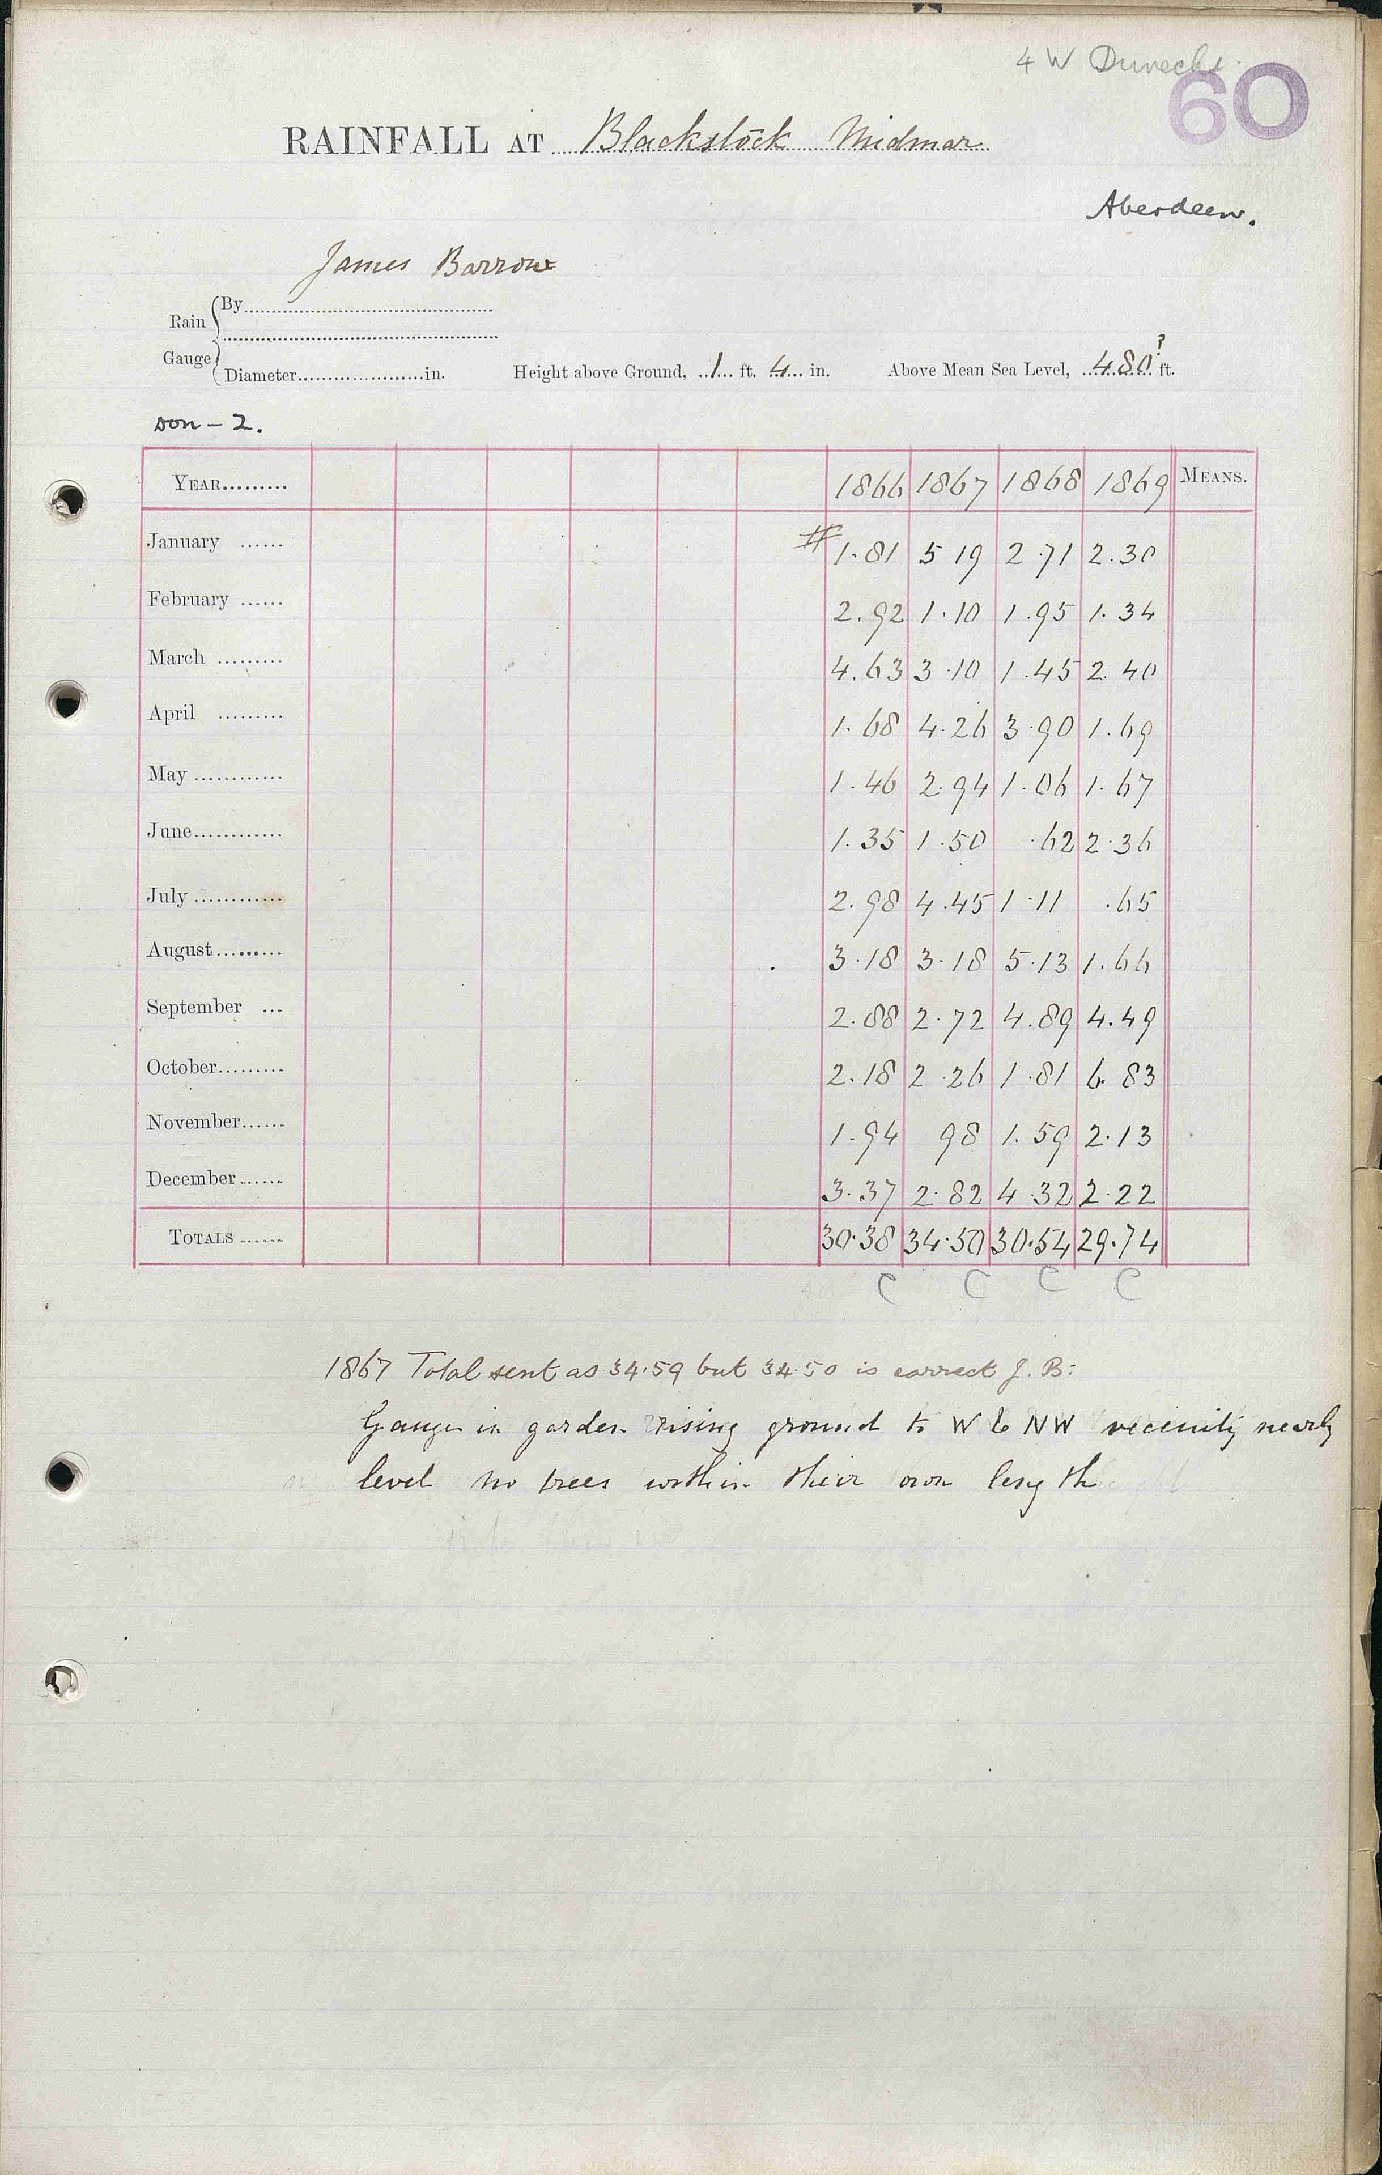 4 W Dunecht.
60
RAINFALL AT Blackstock Midmar.
Aberdeen.
James Barron
Rain Gauge { By
Diameter in. Height above Ground, 1 ft. 4 in. Above Mean Sea Level, 480? ft.
Don - 2.
YEAR 1866 1867 1868 1869 MEANS.
January # 1.81 5 19 2.71 2.30
February 2.92 1.10 1.95 1.34
March 4.63 3.10 1.45 2.40
April 1.68 4.26 3.90 1.69
May 1.46 2.94 1.06 1.67
June 1.35 1.50 .62 2.36
July 2.98 4.45 1.11 .65
August 3.18 3.18 5.13 1.66
September 2.88 2.72 4.89 4.49
October 2.18 2.26 1.81 6.83
November 1.94 98 1.59 2.13
December 3.37 2.82 4.32 2.22
TOTALS 30.38 34.50 30.54 29.74
C C C C
1867 Total sent as 34.59 but 34.50 is correct J. B:
Gauge in garden rising ground to W & NW vecinity nearly
level no trees within their own length